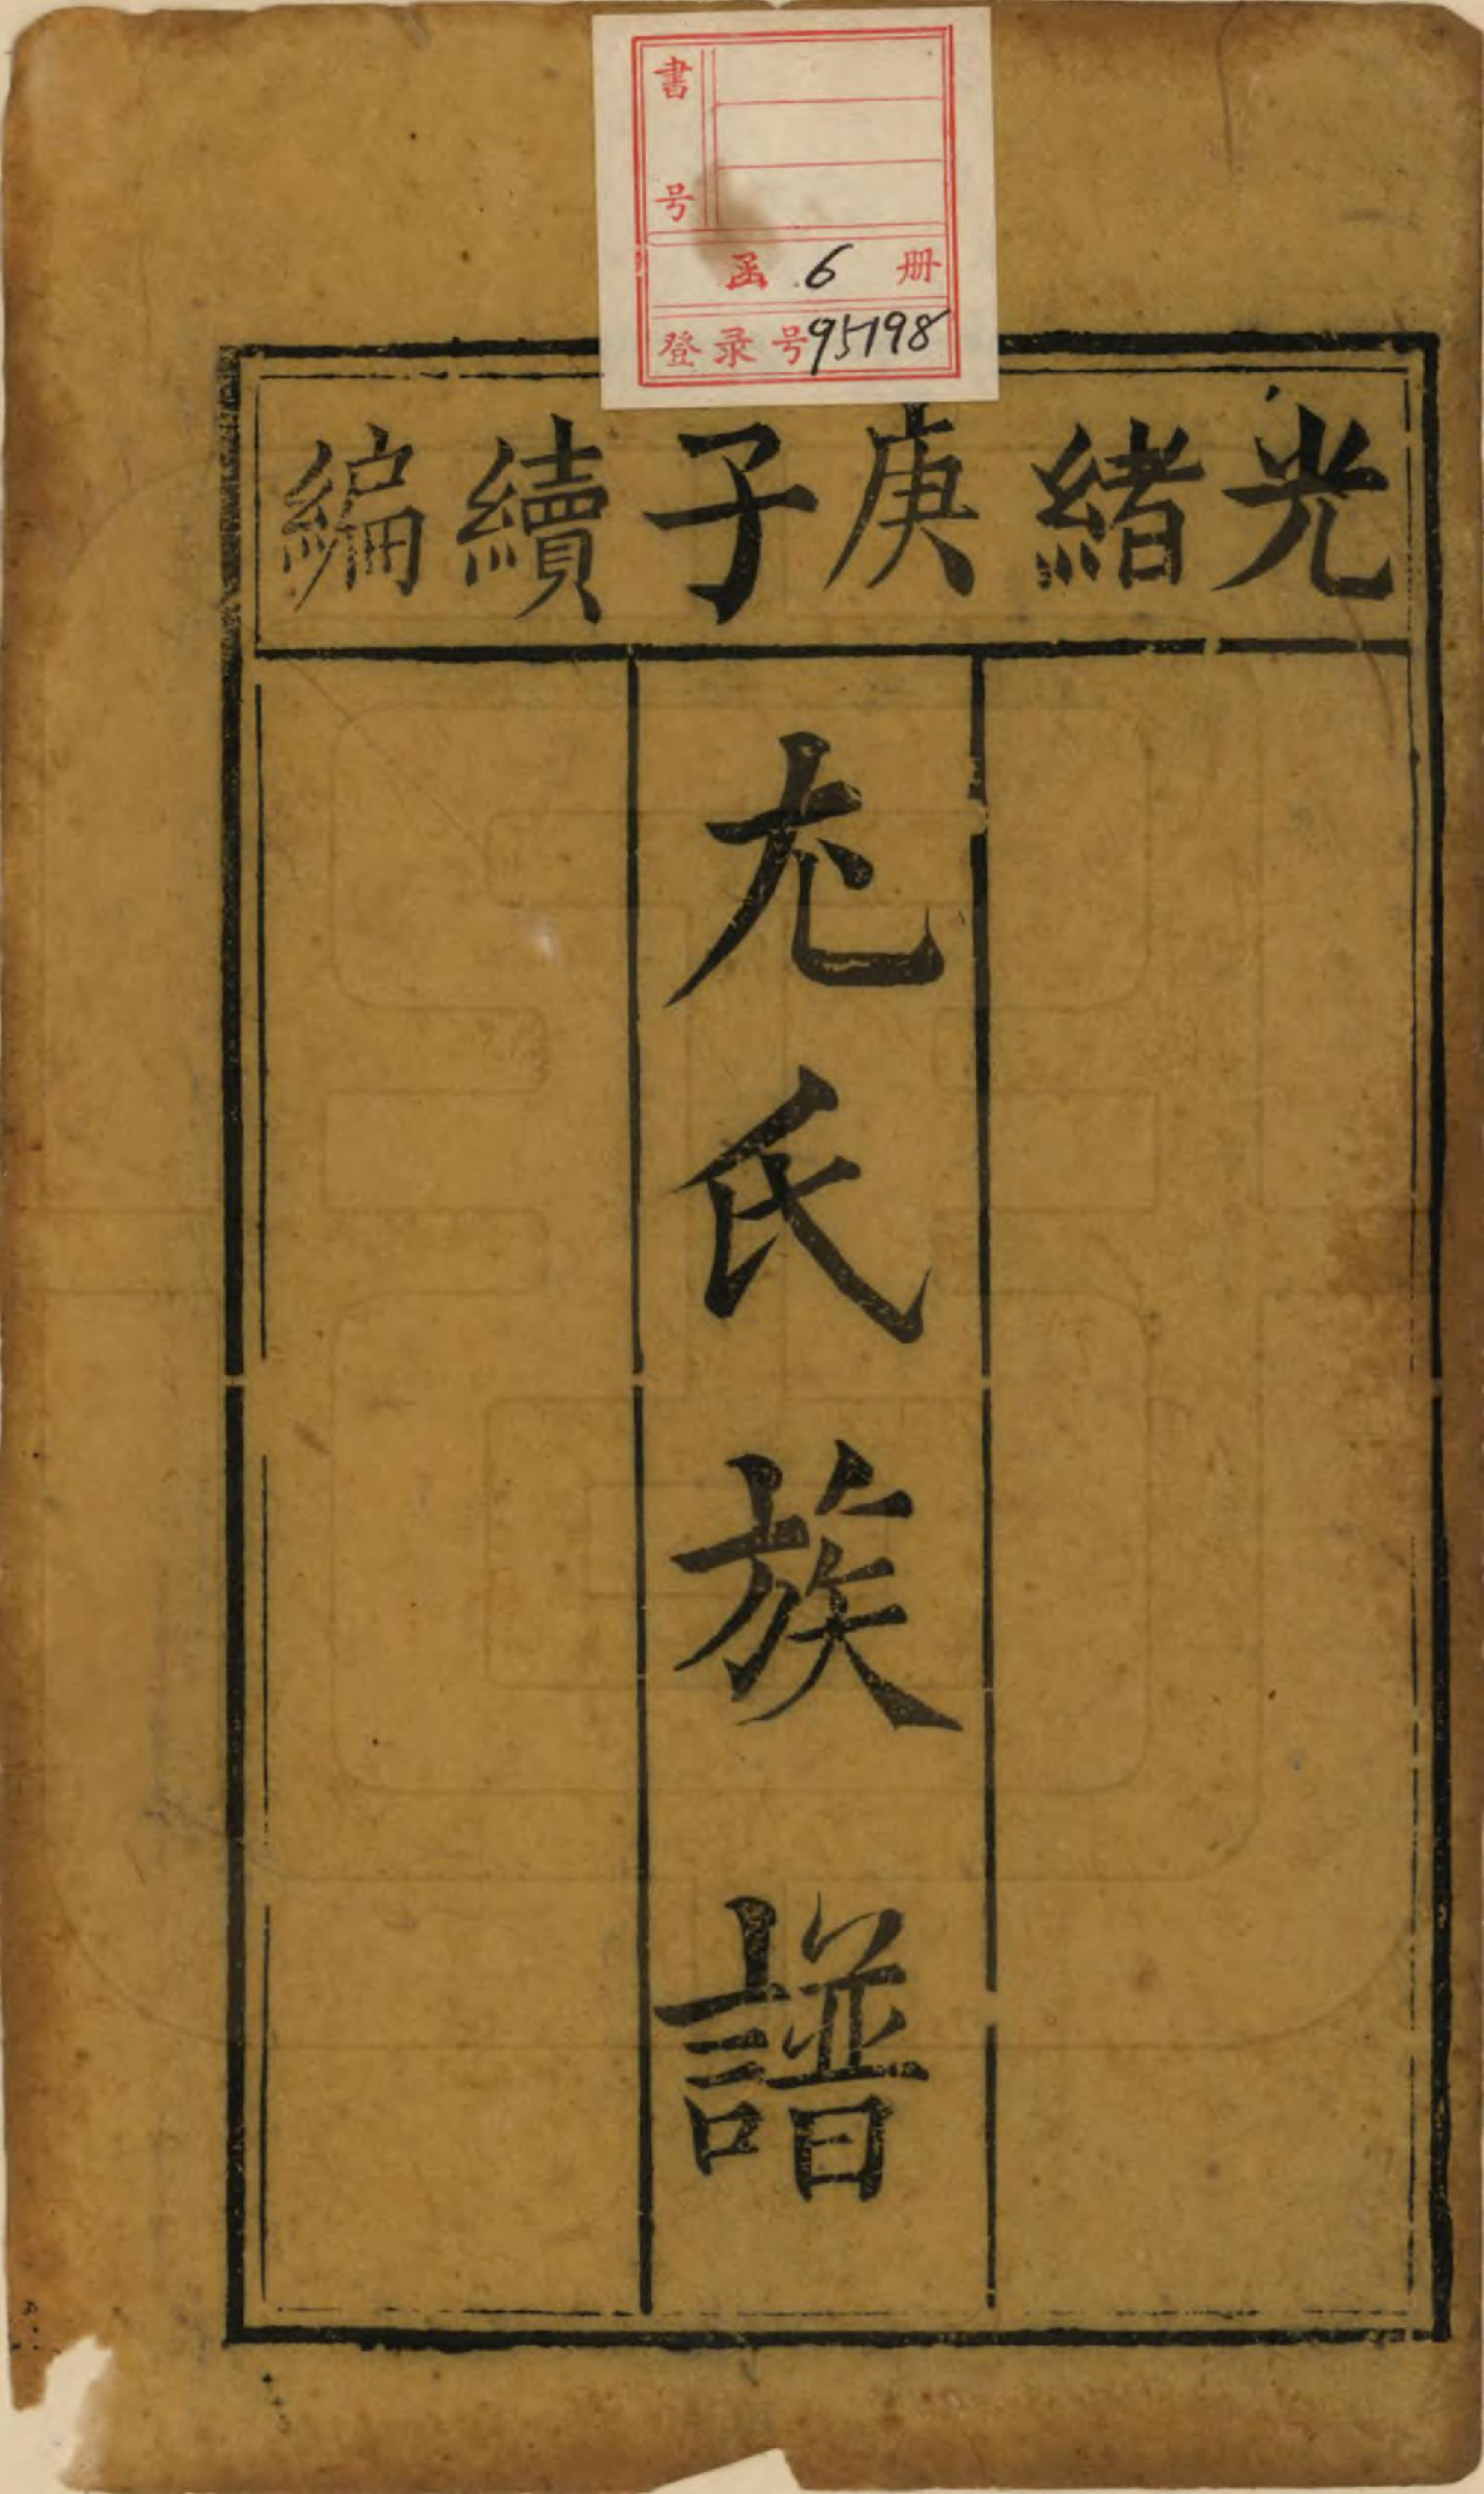 書号
函 6 册
登录号95198
光緒庚子續編
尤氏族譜